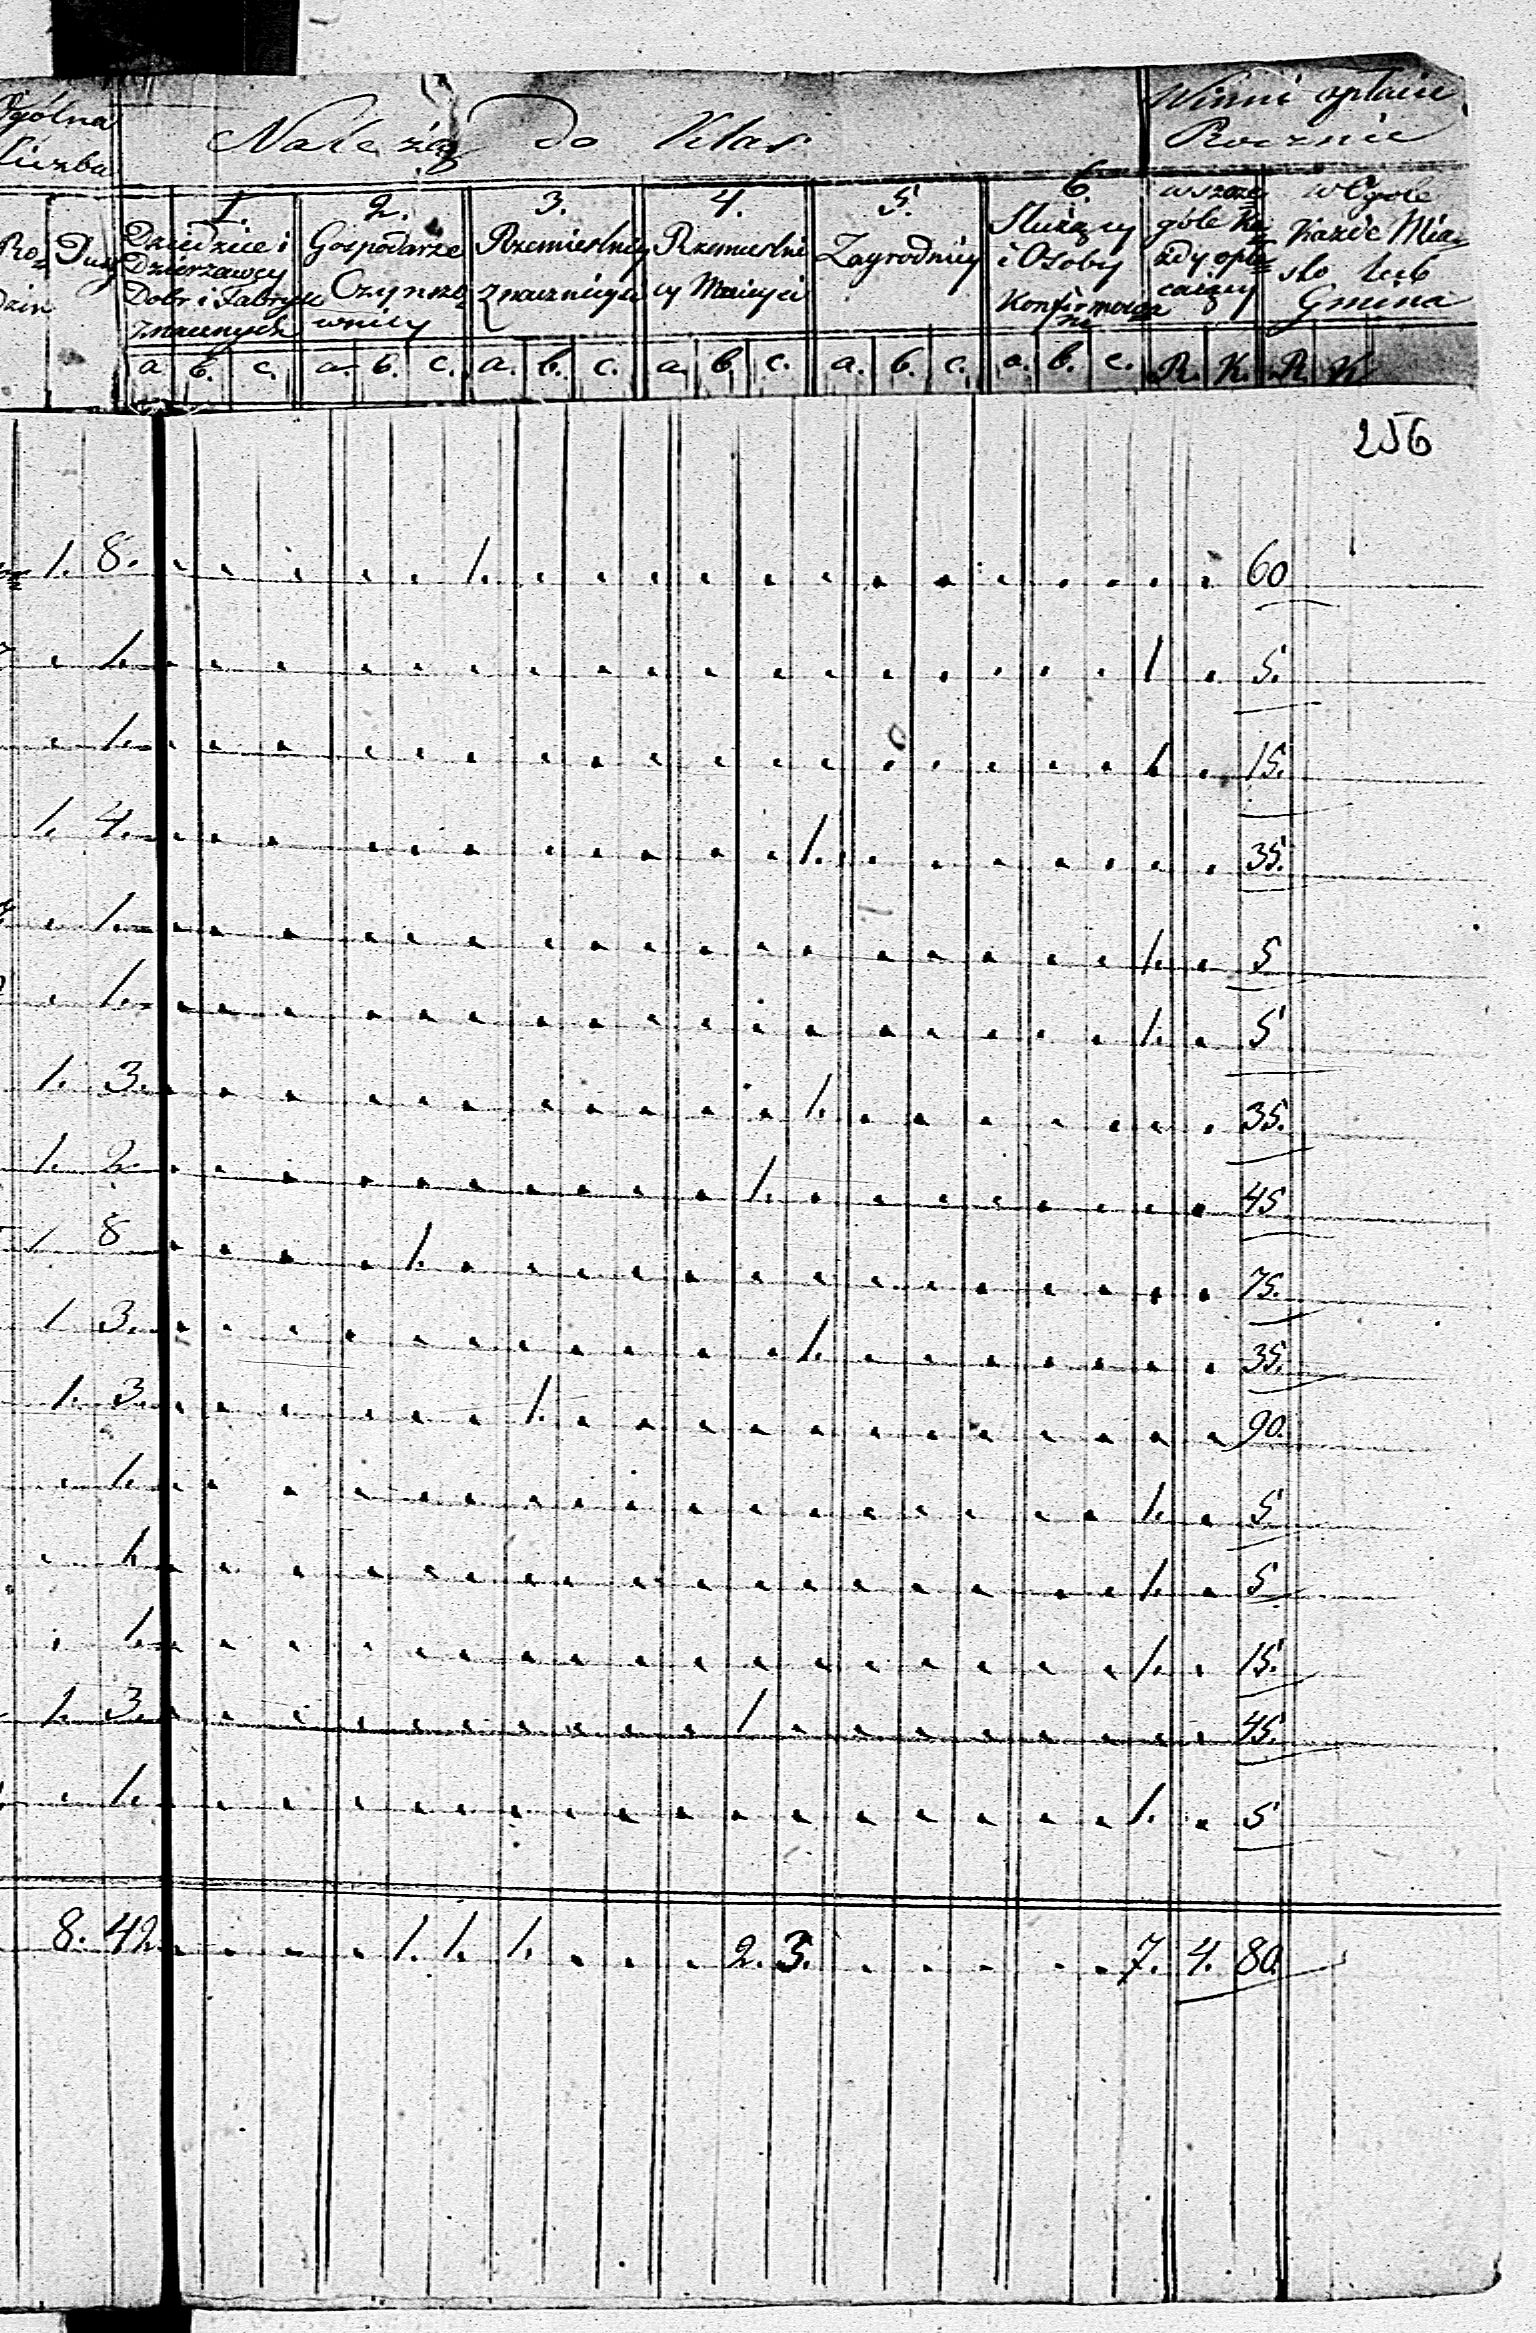 Ogólna Należą do Klas Winni opłacić
Liczba Rocznie
1. 2. 3. 4. 5. 6. w szcze w Ogóle
Ro= Dusz Dziedzice i Gospodarze Rzemieslnicy Rzemieslni Zagrodnicy Służący góle Ka= Każde Mia=
dzin Dzierzawcy Czynszo= znacznieysi cy Mnieysi i Osoby żdy opła= sto lub
Dobr i Fabryk wnicy Konfirmowa= cający Gmina
znacznych ne
a. b. c. a. b. c. a. b. c. a. b. c. a. b. c. a. b. c. R. K. R. K.
256
1. 8. . . . . . 1. . . . . . . . . . . . . . 60
. 1. . . . . . . . . . . . . . . . . . 1 . 5.
. 1. . . . . . . . . . . . . . . . . . 1. . 15.
1. 4. . . . . . . . . . . . 1. . . . . . . . 35.
. 1. . . . . . . . . . . . . . . . . . 1. . 5
. 1. . . . . . . . . . . . . . . . . . 1. . 5
1. 3. . . . . . . . . . . . 1. . . . . . . . 35.
1. 2. . . . . . . . . . . 1. . . . . . . . . 45
1. 8 . . . . 1. . . . . . . . . . . . . . . 75.
1 3. . . . . . . . . . . . 1. . . . . . . . 35.
1. 3. . . . . . . 1. . . . . . . . . . . . . 90.
. 1. . . . . . . . . . . . . . . . . . 1. . 5
. 1. . . . . . . . . . . . . . . . . . 1. . 5
. 1. . . . . . . . . . . . . . . . . . 1. . 15.
1. 3. . . . . . . . . . . 1 . . . . . . . . 45.
. 1. . . . . . . . . . . . . . . . . . 1. . 5
8. 42 . . . . 1. 1. 1. . . . . 2. 3. . . . . . . 7. 4. 80.